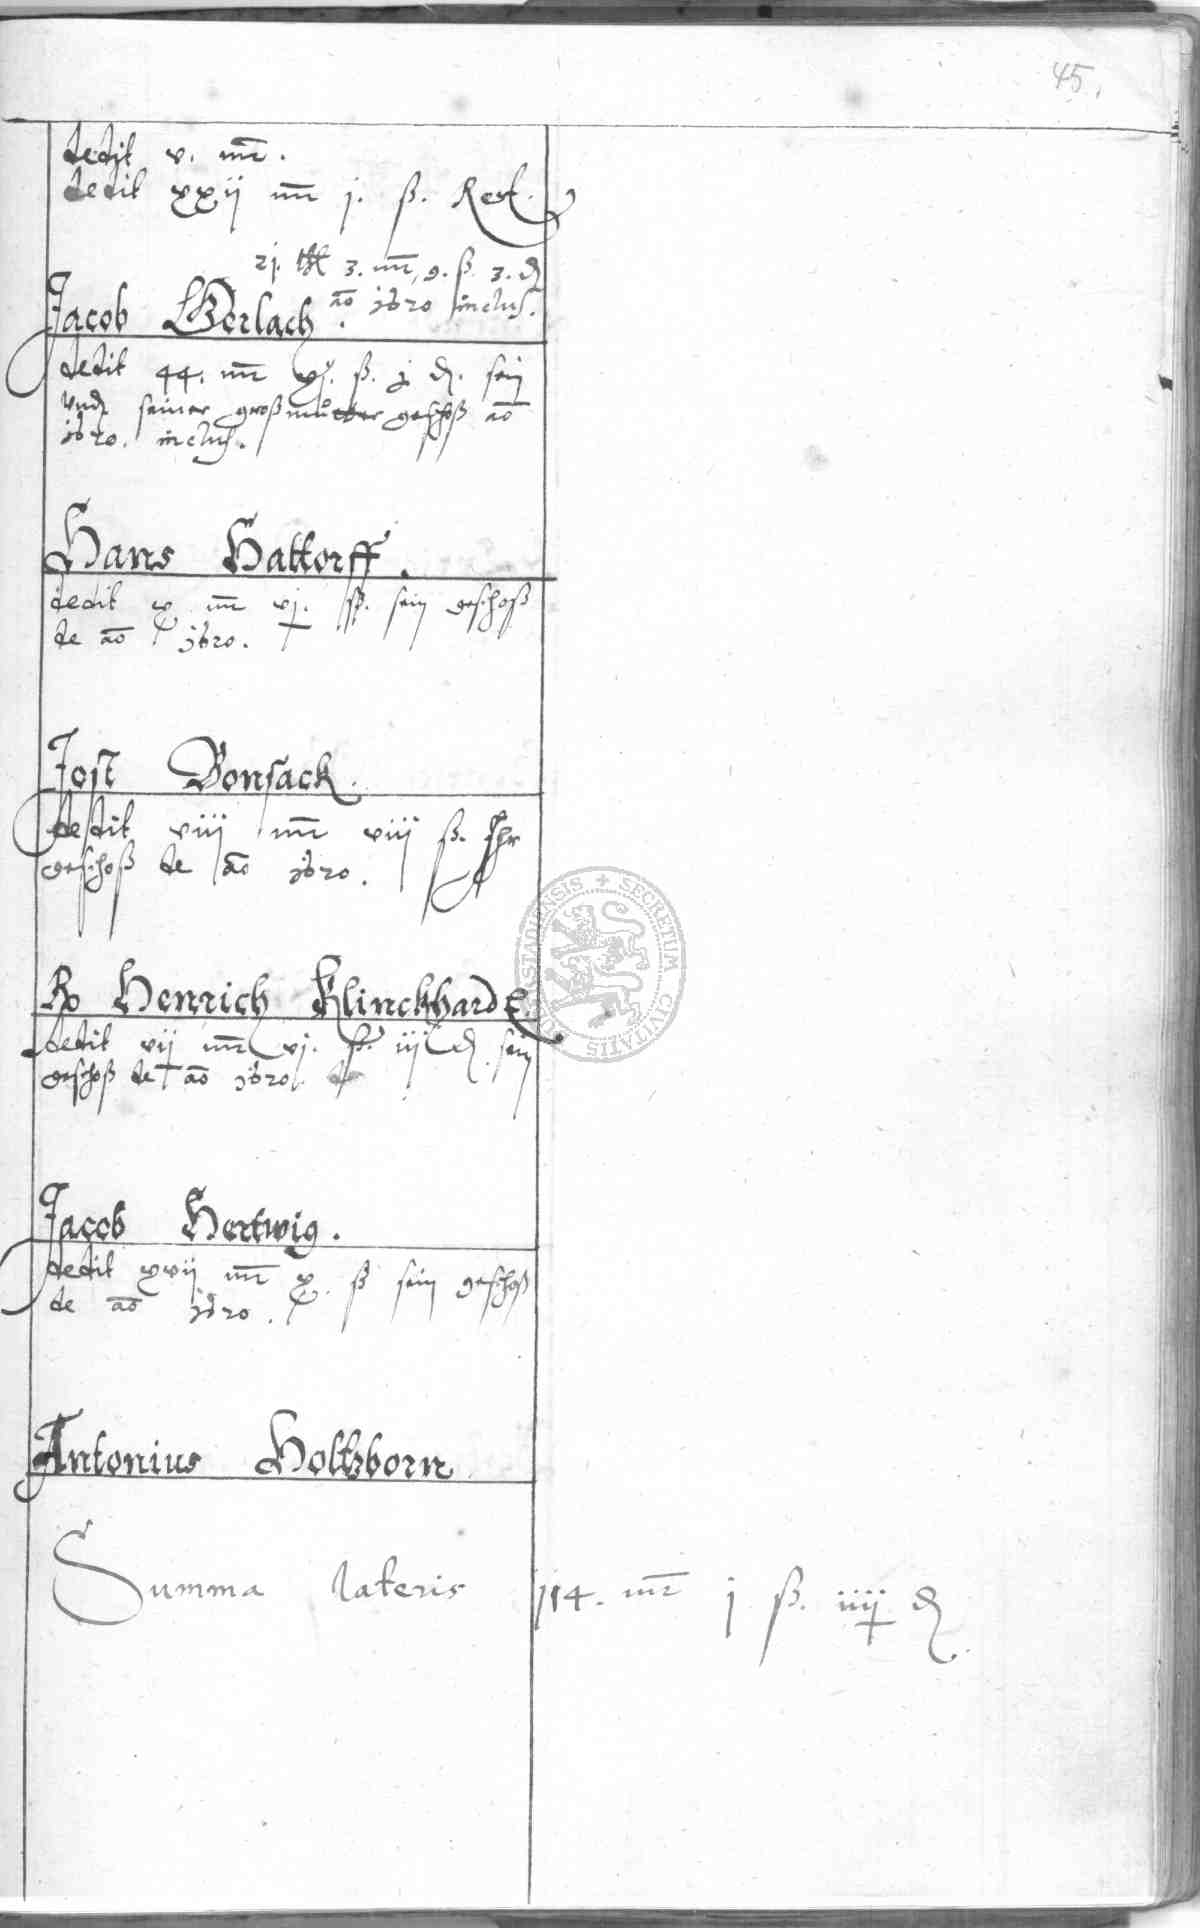 45.
dedit v. mr.
dedit xxij mr j. ß. Rest.
21. thl 3. mr, 9. ß. 3. ₰
ao 1620 inclus.
Jacob Gerlach.
dedit 44. mr xj. ß. j ₰. sein
vnd seiner großmutter geschoß ao
1620. inclus.
Hans Hattorff.
dedit x mr vj. ß. sein geschoß
de ao 1620.
Jost Bonsack.
dedit viij mr viij ß. Ihr
geschoß de ao 1620.
Ro Henrich Klinckhardt
dedit vij mr vj. ß. iij ₰ sein
geschoß de ao 1620.
Jacob Hertwig.
dedit xvij mr x. ß sein geschoß
de ao 1620.
Antonius Holtzborn
Summa lateris 114. mr j ß. iiij ₰
SECRETUM CIVITATIS